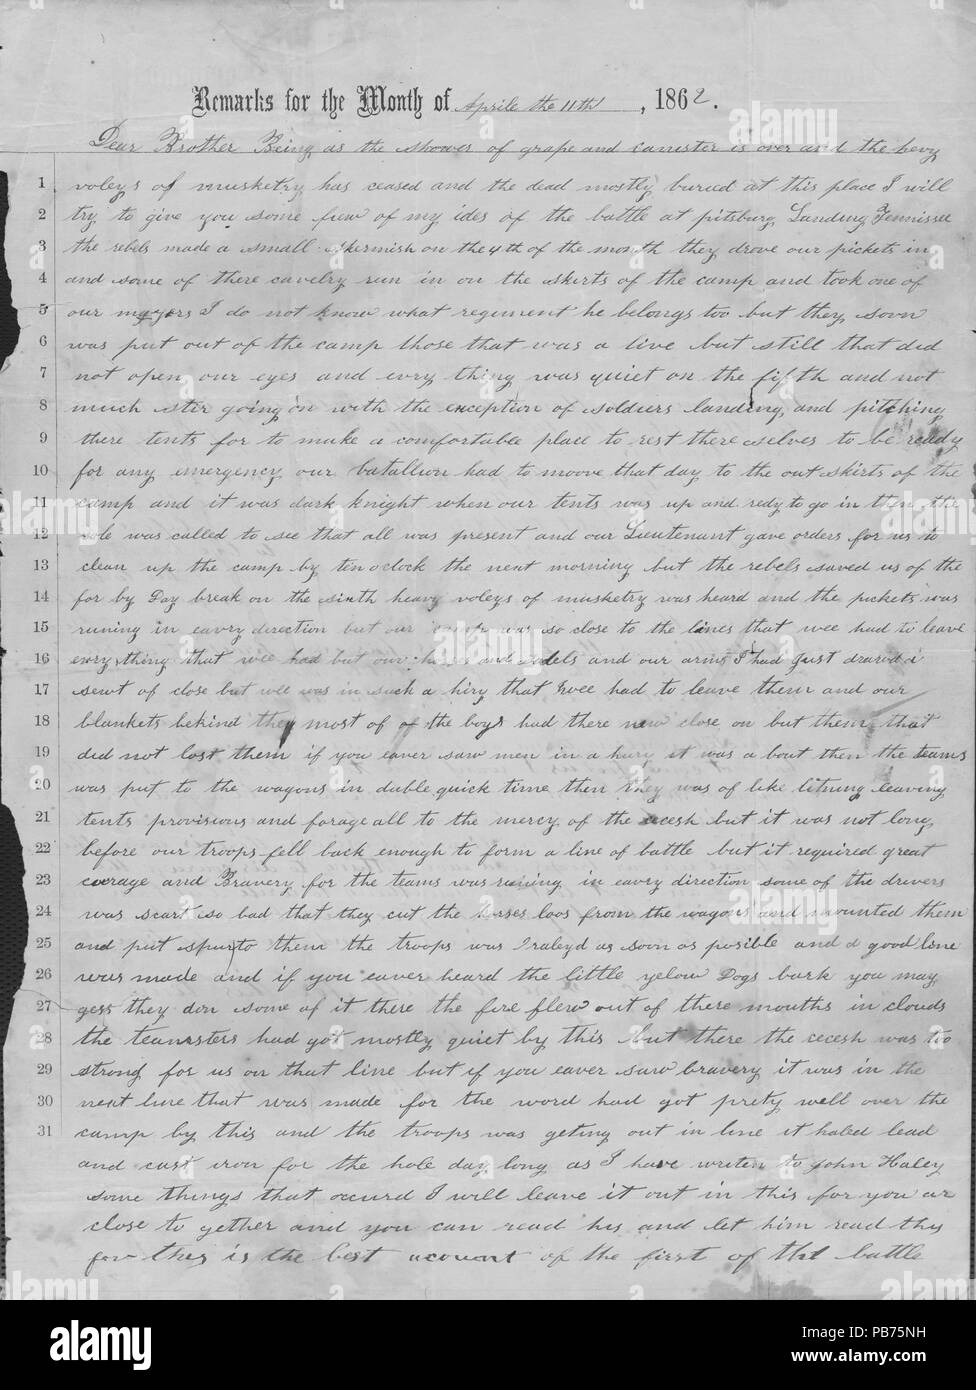 Remarks for the Month of Aprile the 11th, 1862.
Dear Brother Being as the shower of grape and canister is over and the hevy
1 voleys of musketry has ceased and the dead mostly buried at this place I will
2 try to give you some few of my ides of the battle at pitsburg Landing Tennissee
3 the rebels made a small skermish on the 4th of the month they drove our pickets in
4 and some of there cavelry run in on the skerts of the camp and took one of
5 our mayjers I do not know what regiment he belongs too but they soon
6 was put out of the camp those that was a live but still that did
7 not open our eyes and evry thing was quiet on the fifth and not
8 much ster going on with the exception of soldiers landing and pitching
9 there tents for to make a comfortable place to rest there selves to be ready
10 for any emergency our batallion had to moove that day to the out skirts of the
11 camp and it was dark knight when our tents was up and redy to go in then the
12 role was called to see that all was present and our Lieutenant gave orders for us to
13 clean up the camp by ten oclock the next morning but the rebels saved us of the
14 for by Day break on the sixth heavy voleys of musketry was heard and the pickets was
15 runing in eavry direction but our camp was so close to the lines that wee had to leave
16 evry thing that wee had but our horses and sadels and our arms I had Just drawed a
17 sewt of close but wee was in such a hiry that wee had to leave them and our
18 blankets behind they most of of the boys had there new close on but them that
19 did not lost them if you eaver saw men in a hury it was a bout then the teams
20 was put to the wagons in duble quick time then they was of like litning leaving
21 tents provisions and forage all to the mercy of the secesh but it was not long
22 before our troops fell back enough to form a line of battle but it required great
23 coerage and Bravery for the teams was runing in eavry direction some of the drivers
24 was scart so bad that they cut the horses loos from the wagons and mounted them
25 and put spurs to them the troops was I raleyd as soon as posible and a good line
26 was made and if you eaver heard the little yelow Dogs bark you may
27 gess they don some of it there the fire flew out of there mouths in clouds
28 the teamsters had got mostly quiet by this but there the cecesh was too
29 strong for us on that line but if you eaver saw bravery it was in the
30 next line that was made for the word had got prety well over the
31 camp by this and the troops was geting out in line it haled lead
and cast iron for the hole day long as I have writen to John Haley
some things that occurd I will leave it out in this for you ar
close to gether and you can read his and let him read this
for this is the best acount of the first of that battle
alamy
Image ID: PB75NH
www.alamy.com